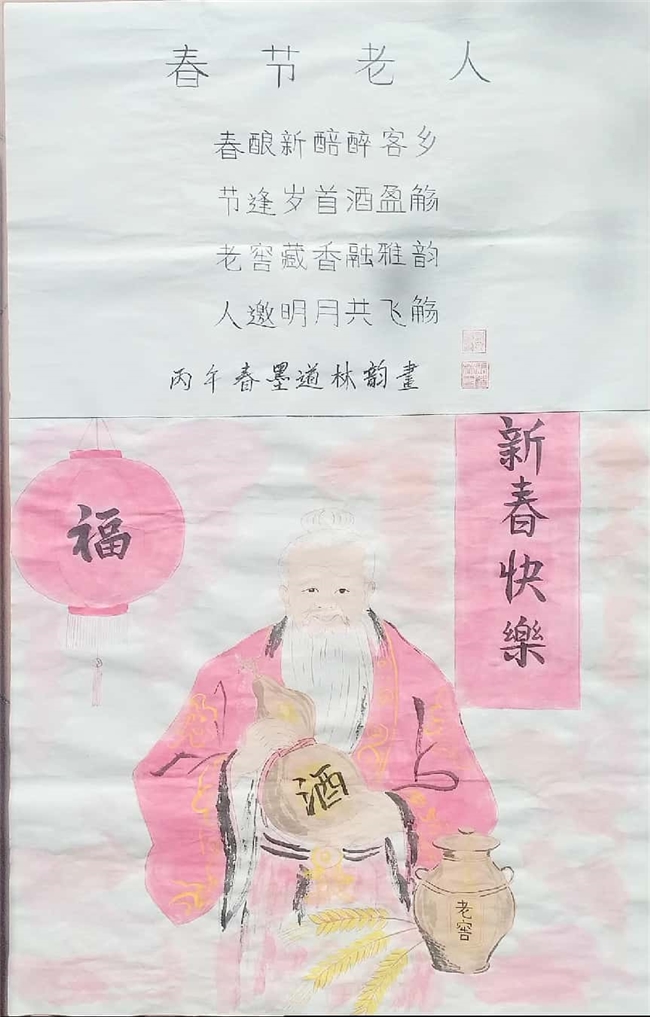 春节老人
春酿新醅醉客乡
节逢岁首酒盈觞
老窖藏香融雅韵
人邀明月共飞觞
丙午春墨道林韵畫
福
新春快樂
酒
老窖